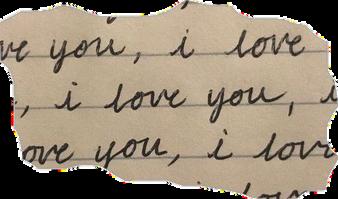 ve you, i love
, i love you, i
ove you, i love
love